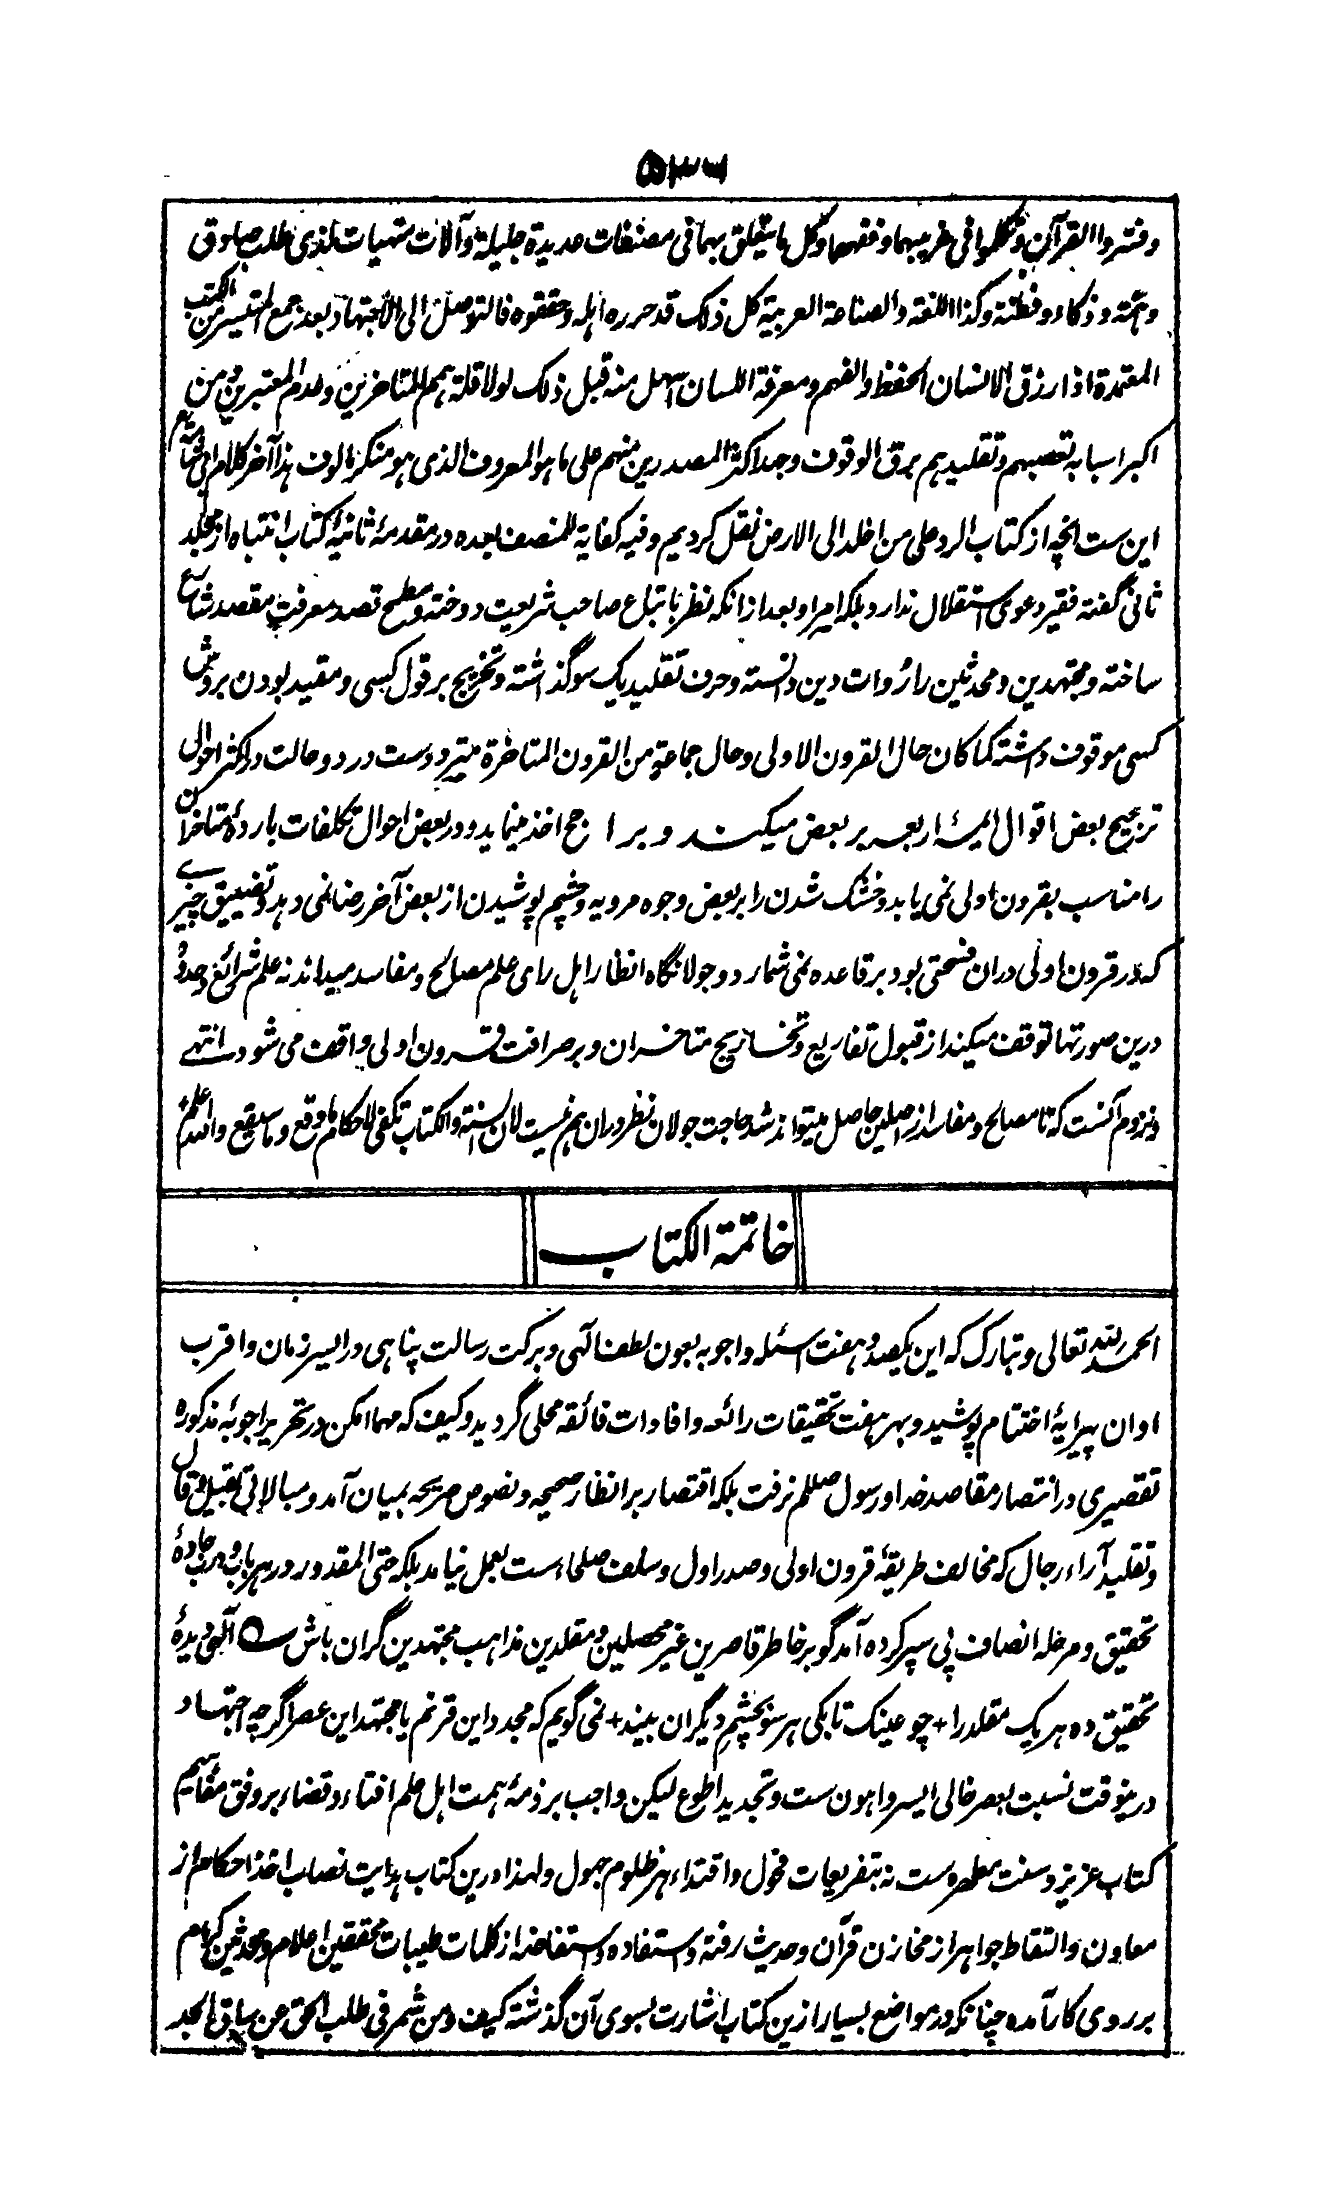 ۵۳۳
وفسروا القرآن وتكلموا فی غریبهما وفقههما وكل ما یتعلق بهما فی مصنفات عدیدة جلیلة وآلات متهیات لذی طلب صادق
وهمة وذكاء وفطنة وكذا اللغة والصناعة العربیة كل ذلك قد حرره اهله وحققوه فالتوصل الی الاجتهاد بعد جمع المتیسر من الكتب
المعتمدة اذا رزق الانسان الحفظ والفهم ومعرفة اللسان اسهل منه قبل ذلك لولا قلة همم المتاخرین وعدم المعتبرین ومن
اكبر اسبابه تعصبهم وتقلیدهم برق الوقوف وجد اكثر المصدرین منهم علی ما هو المعروف الذی هو منكر مالوف هذا آخر كلام ابی شامة
این ست انچه از كتاب الرد علی من اخلد الی الارض نقل كردیم وفیه كفایة للمنصف بعده در مقدمۀ ثانیۀ كتاب انتباه از مجلد
ثانی گفته فقیر دعوی استقلال ندارد بلكه امر او بعد از انكه نظر باتباع صاحب شریعت دوخته ومطمح قصد معرفت مقصد شارع
ساخته ومجتهدین ومحدثین را رُوات دین دانسته وحرف تقلید یك سو گذاشته وتخریج بر قول كسی ومقید بودن بروش
كسی موقوف داشته كما كان حال القرون الاولی وحال جماعةٍ من القرون المتاخرة متردد ست در دو حالت در اكثر احوال
ترجیح بعض اقوال ایمۀ اربعه بر بعض میكند و بر ا جح اخذ مینماید ودر بعض احوال تكلفات باردۀ متاخران
را مناسب بقرون اولی نمی یابد وخشك شدن را بر بعض وجوه مرویه وچشم پوشیدن از بعض آخر رضا نمی دهد وتضییق چیزے
كه در قرون اولی دران فسحتی بود بر قاعده نمی شمارد وجولانگاه انظار اهل رای علم مصالح ومفاسد میداند نه علم شرائع وحدود
درین صورتها توقف میكند از قبول تفاریع وتخاریج متاخران وبر صرافت قرون اولی واقف می شود انتهے
ونزدم آنست كه تا مصالح ومفاسد از اصلین حاصل میتواند شد حاجت جولان نظر دران هم نیست لان السنة والكتاب تكفی لاحكام ما وقع وما سیقع والله اعلم
خاتمة الكتاب
الحمد لله تعالی وتبارك كه این یكصد وهفت اسئله واجوبه بعون لطف الهی وبركت رسالت پناهی در ایسر زمان واقرب
اوان پیرایۀ اختتام پوشید وبهر هفت تحقیقات رائعه وافادات فائقه محلی گردید وكیف كه مهما امكن در تحریر اجوبۀ مذكوره
تقصیری در انتصار مقاصد خدا ورسول صللم نرفت بلكه اقتصار بر انظار صحیحه ونصوص صریحه بمیان آمد ومبالاتی بقیل وقال
وتقلید آراء رجال كه مخالف طریقۀ قرون اولی وصدر اول وسلف صلحاء ست بعمل نیامد بلكه حتی المقدور در هر باب درب جادۀ
تحقیق ومرحلۀ انصاف پی سپر كرده آمد گو بر خاطر قاصرین غیر محصلین ومقلدین مذاهب مجتهدین گران باش ؎ الهی دیدۀ
تحقیق ده هر یك مقلد را + چو عینك تا بكی هر سو بچشمِ دیگران بیند + نمی گویم كه مجدد این قرنم یا مجتهد این عصر اگرچه اجتهاد
درینوقت نسبت بعصر خالی ایسر واهون ست وتجدید اطوع لیكن واجب بر ذمۀ همت اهل علم افتاء وقضاء بر وفق مفاهیم
كتاب عزیز وسنت مطهره ست نه بتفریعات فحول واقتداء هر ظلوم جهول ولهذا درین كتاب هدایت نصاب اخذ احكام از
معادن والتقاط جواهر از مخازن قرآن وحدیث رفته واستفاده واستفاضه از كلمات طیبات محققین اعلام ومحدثین كرام
بر روی كار آمده چنانكه در مواضع بسیار ازین كتاب اشارت بسوی آن گذشته كیف ومن شمر فی طلب الحق عن ساق الجد